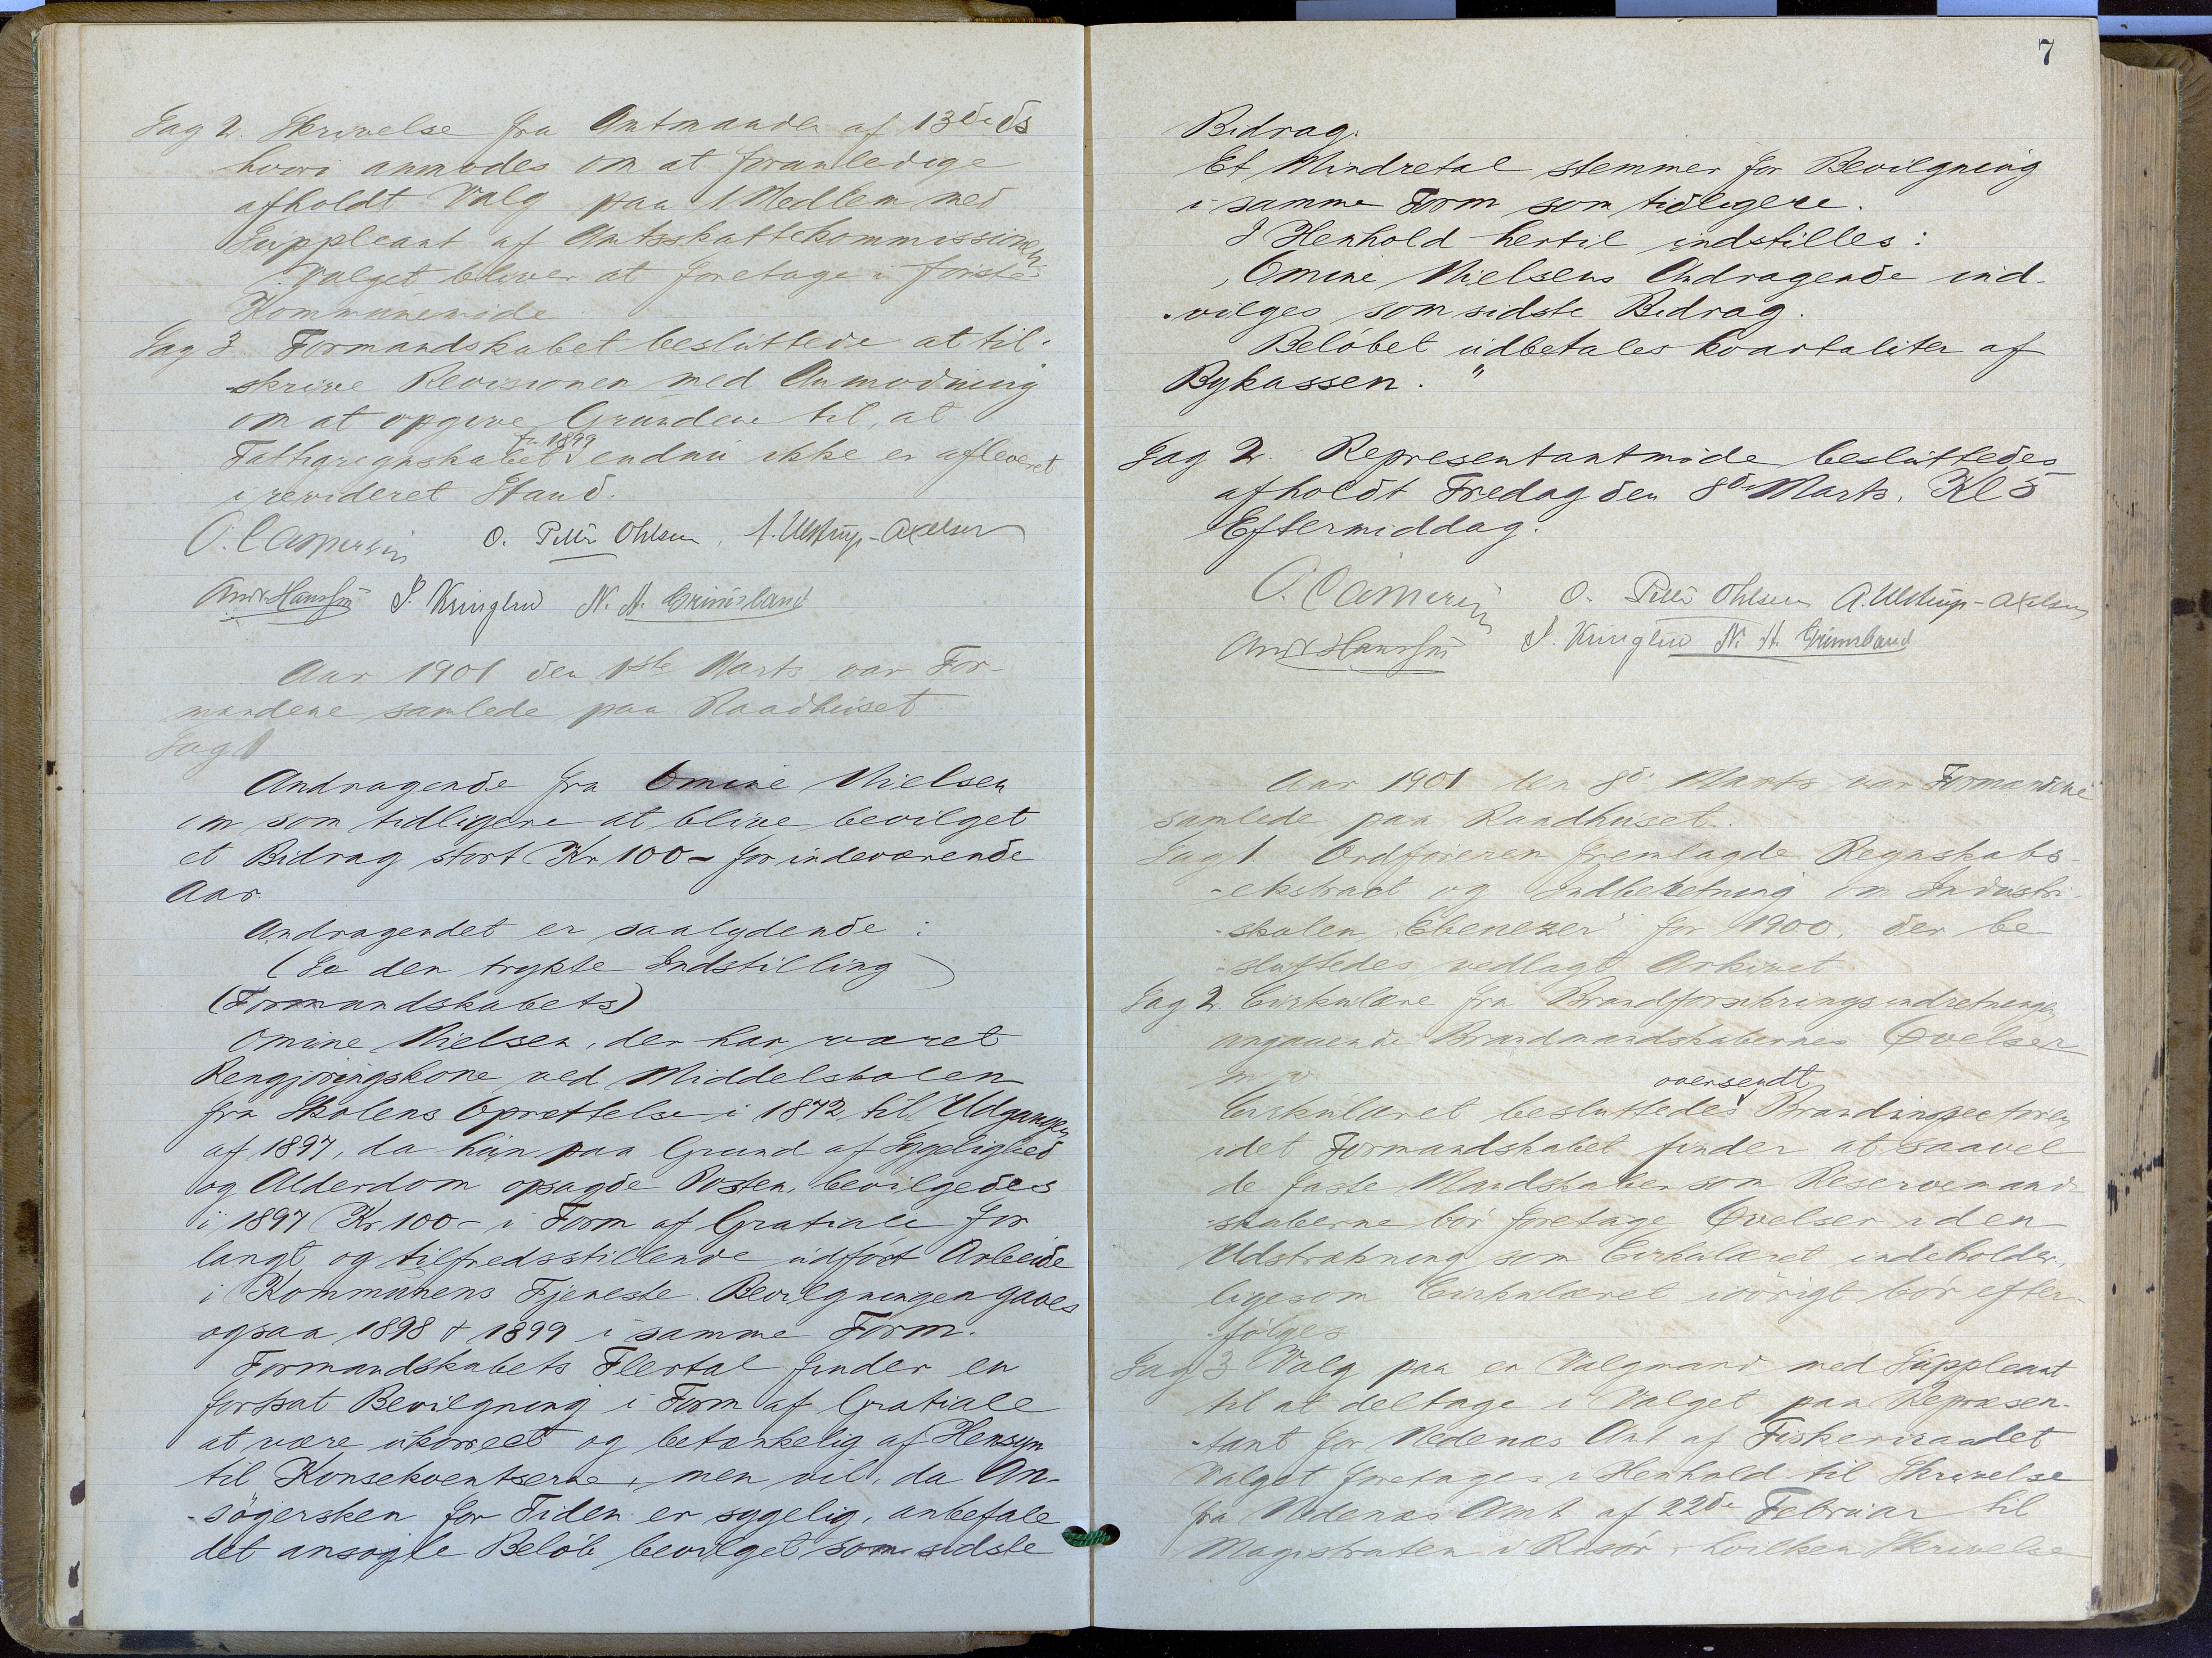 Sag 2. Skrivelse fra Amtmanden af 13de ds
hvori anmodes om at foranledige
afholdt Valg paa 1 Medlem med
Suppleant af Amtsskattekommissionen
Valget bliver at foretage i første
Kommunemøde
Sag 3. Formandskabet besluttede at til-
-skrive Revisionen med Anmodning
om at opgive Grundene til, at
Fattigregnskabet for 1899 endnu ikke er afleveret
i revideret Stand.
O. Petter Ohlsen. A. Ulstrup-Axelsen
Andr. Hanssen S. Kringlud N. A. Grimsland
Aar 1901 den 1ste Marts var For-
mandene samlede paa Raadhuset.
Sag 1
Andragende fra Omine Nielsen
om som tidligere at blive bevilget
et Bidrag stort Kr 100- for indeværende
Aar.
Andragendet er saalydende:
(Se den trykte Indstilling)
(Formandskabets)
Omine Nielsen, der har været
Rengjøringskone ved Middelskolen
fra Skolens Oprettelse i 1872 til Udgangen
af 1897, da hun paa Grund af Sygelighed
og Alderdom opsagde Posten, bevilgedes
i 1897 Kr 100- i Form af Gratiale for
langt og tilfredsstillende udført Arbeide
i Kommunens Tjeneste. Bevilgningen gaves
ogsaa 1898 & 1899 i samme Form.
Formandskabets Flertal finder en
fortsat Bevilgning i Form af Gratiale
at være ukorrect og betænkelig af Hensyn
til Konsekventserne, men vil, da An-
-søgersken for Tiden er sygelig, anbefale
det ansøgte Beløb bevilget som sidste
7
Bidrag.
Et Mindretal stemmer for Bevilgning
i samme Form som tidligere.
I Henhold hertil indstilles:
„Omine Nielsens Andragende ind-
-vilges som sidste Bidrag.
Beløbet udbetales kvartaliter af
Bykassen."
Sag 2. Representantmøde besluttedes
afholdt Fredag den 8de Marts. Kl 5
Eftermiddag.
O. Petter Ohlsen A. Ulstrup-Axelsen
Andr Hanssen S. Kringlud N. A. Grimsland
Aar 1901 den 8de Marts var Formændene
samlede paa Raadhuset.
Sag 1 Ordføreren fremlagde Regnskabs-
-ekstract og Indberetning om Industri-
-skolen „Ebenezer" for 1900, der be-
-sluttedes vedlagt Arkivet
Sag 2. Cirkulære fra Brandforsikringsindretningen
angaaende Brandmandskabernes Øvelser
m. v.
Cirkulæret besluttedes oversendt Brandinspectøren
idet Formandskabet finder at saavel
de faste Mandskaber som Reservemand-
-skaberne bør foretage Øvelser i den
Udstrækning som Cirkulæret indeholder,
ligesom Cirkulæret iøvrigt bør efter-
-følges
Sag 3 Valg paa en Valgmand med Suppleant
til at deltage i Valget paa Repræsen-
-tant for Nedenæs Amt af Fiskeriraadet
Valget foretages i Henhold til Skrivelse
fra Nedenæs Amt af 22de Februar til
Magistraten i Risør, hvilken Skrivelse